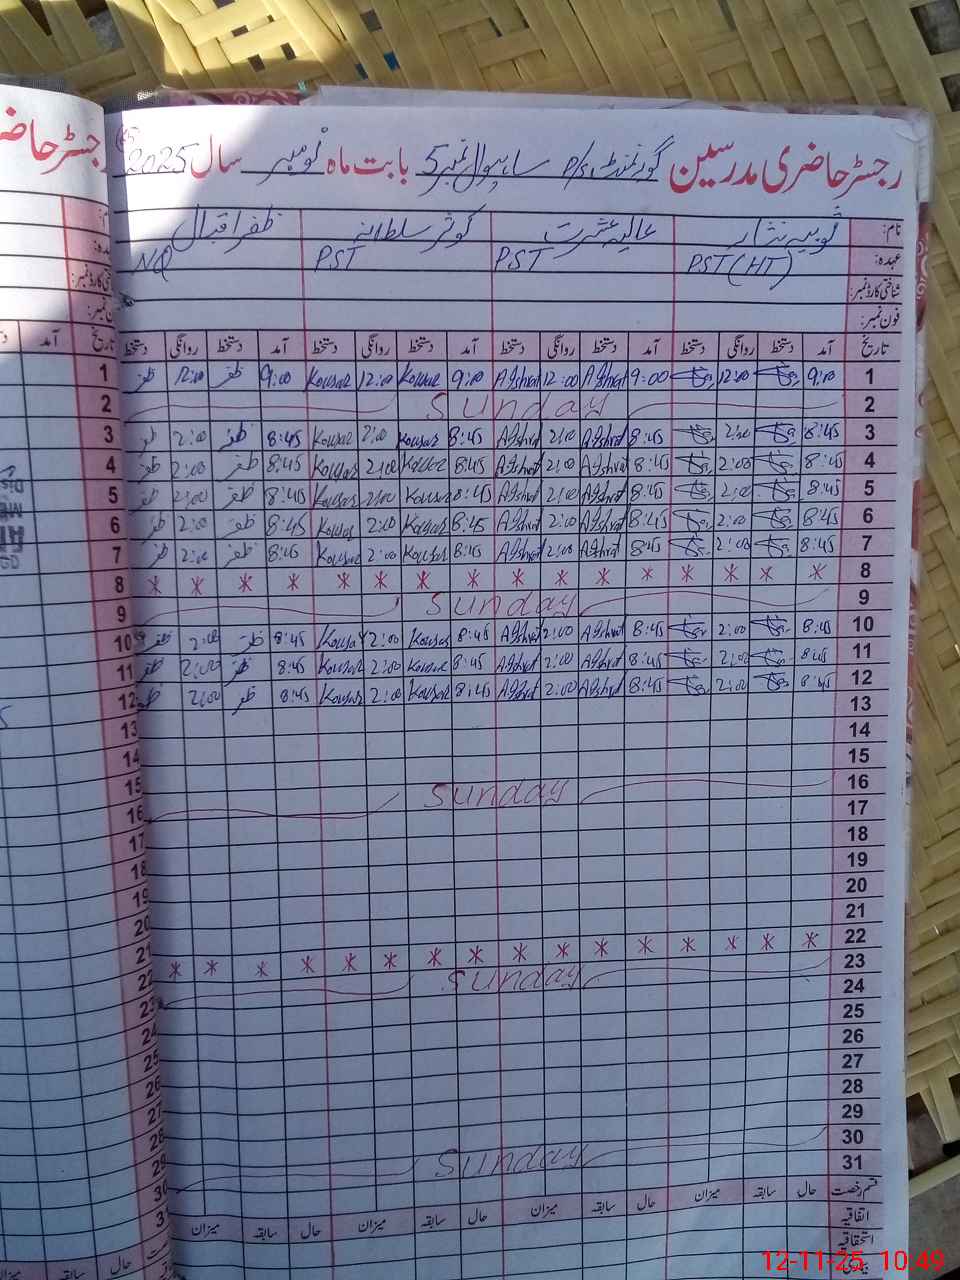 رجسٹر حاضری مدرسین گورنمنٹ P/S ساہیوال نمبر 5 بابت ماہ نومبر سال 2025
نام: ثوبیہ نثار عالیہ عشرت کوثر سلطانہ ظفر اقبال
عہدہ: PST (HT) PST PST NQ
شناختی کارڈ نمبر:
فون نمبر:
تاریخ آمد دستخط روانگی دستخط آمد دستخط روانگی دستخط آمد دستخط روانگی دستخط آمد دستخط روانگی دستخط تاریخ
1 9:00 12:00 9:00 AIshrat 12:00 AIshrat 9:00 Kousar 12:00 Kousar 9:00 ظفر 12:00 ظفر 1
2 Sunday 2
3 8:45 2:00 8:45 AIshrat 2:00 AIshrat 8:45 Kousar 2:00 Kousar 8:45 ظفر 2:00 ظفر 3
4 8:45 2:00 8:45 AIshrat 2:00 AIshrat 8:45 Kousar 2:00 Kousar 8:45 ظفر 2:00 ظفر 4
5 8:45 2:00 8:45 AIshrat 2:00 AIshrat 8:45 Kousar 2:00 Kousar 8:45 ظفر 2:00 ظفر 5
6 8:45 2:00 8:45 AIshrat 2:00 AIshrat 8:45 Kousar 2:00 Kousar 8:45 ظفر 2:00 ظفر 6
7 8:45 2:00 8:45 AIshrat 2:00 AIshrat 8:45 Kousar 2:00 Kousar 8:45 ظفر 2:00 ظفر 7
8 * * * * * * * * * * * * * * * * 8
9 Sunday 9
10 8:45 2:00 8:45 AIshrat 2:00 AIshrat 8:45 Kousar 2:00 Kousar 8:45 ظفر 2:00 ظفر 10
11 8:45 2:00 8:45 AIshrat 2:00 AIshrat 8:45 Kousar 2:00 Kousar 8:45 ظفر 2:00 ظفر 11
12 8:45 2:00 8:45 AIshrat 2:00 AIshrat 8:45 Kousar 2:00 Kousar 8:45 ظفر 2:00 ظفر 12
13 13
14 14
15 15
16 Sunday 16
17 17
18 18
19 19
20 20
21 21
22 * * * * * * * * * * * * * * * * 22
23 Sunday 23
24 24
25 25
26 26
27 27
28 28
29 29
30 Sunday 30
31 31
قسم رخصت حال سابقہ میزان حال سابقہ میزان حال سابقہ میزان حال سابقہ میزان
اتفاقیہ
استحقاقیہ
12-11-25 10:49